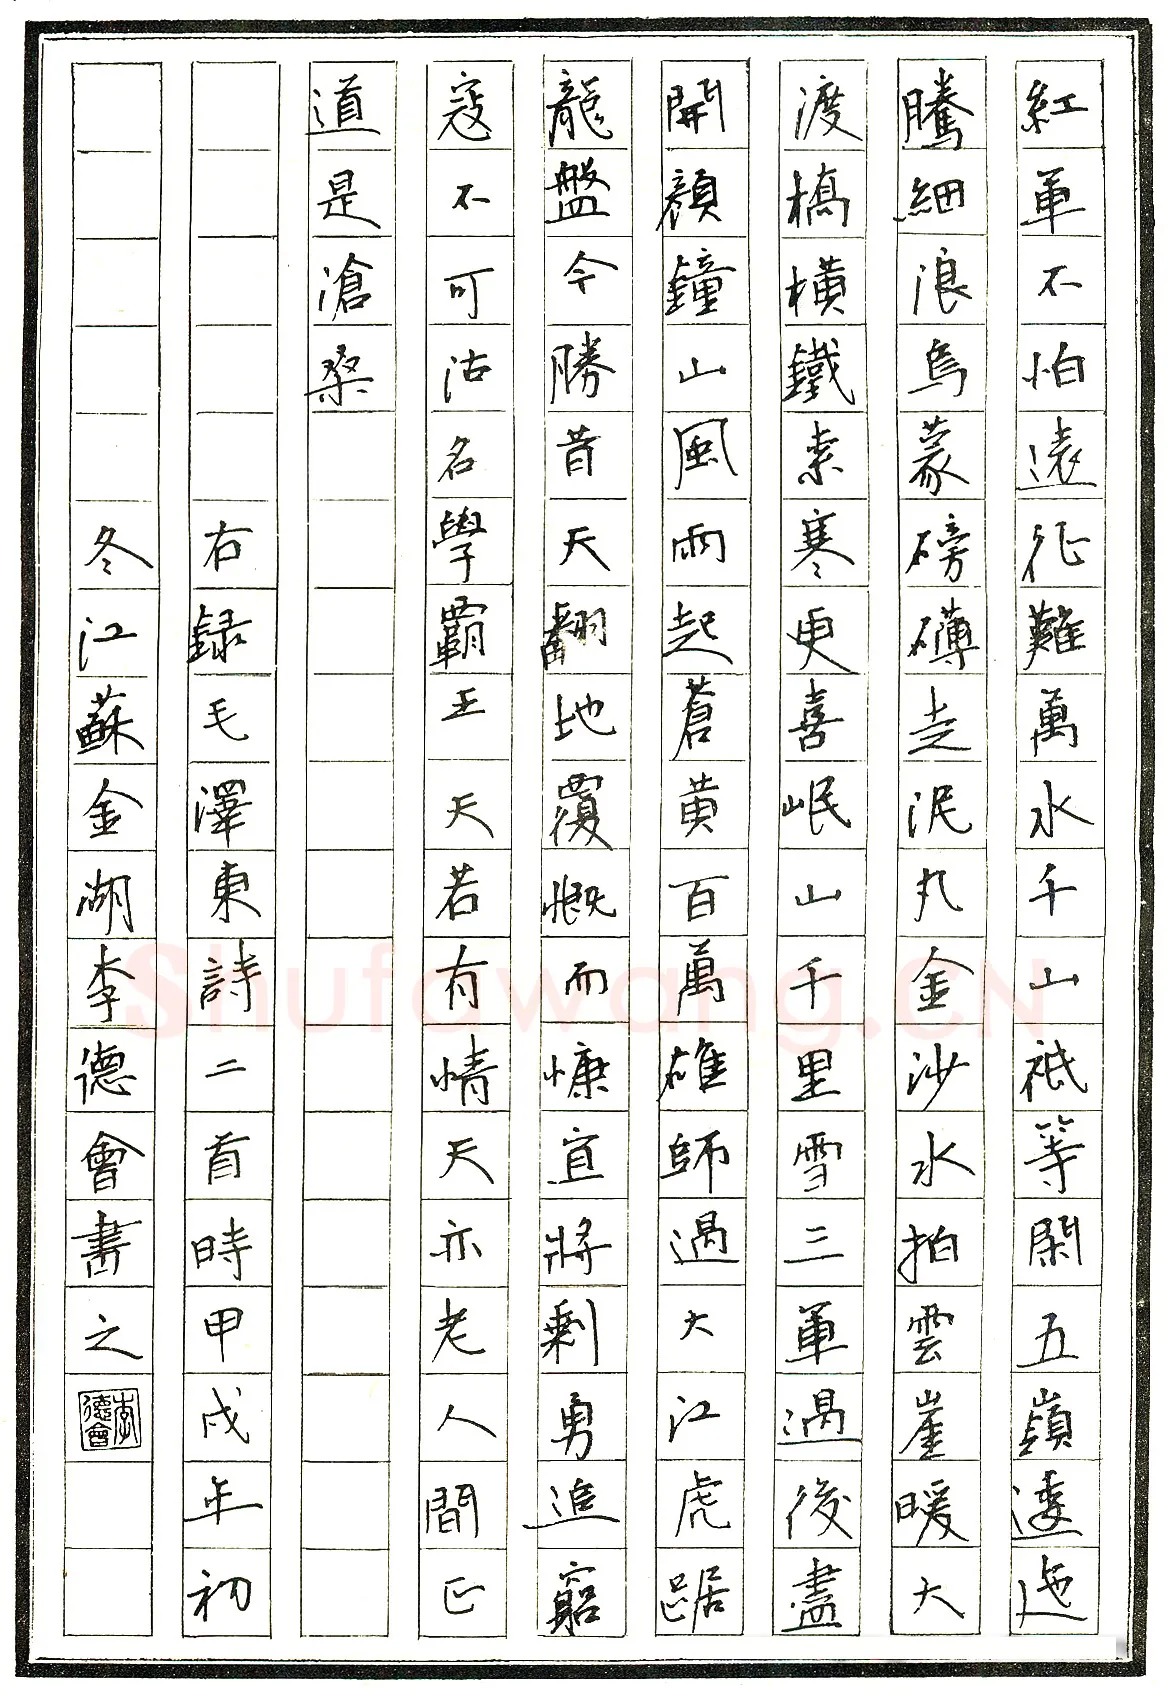 紅軍不怕遠征難萬水千山祗等閑五嶺逶迤
騰細浪烏蒙磅礴走泥丸金沙水拍雲崖暖大
渡橋橫鐵索寒更喜岷山千里雪三軍過後盡
開顏鐘山風雨起蒼黃百萬雄師過大江虎踞
龍盤今勝昔天翻地覆慨而慷宜將剩勇追窮
寇不可沽名學霸王天若有情天亦老人間正
道是滄桑
右録毛澤東詩二首時甲戌年初
冬江蘇金湖李德會書之
李德會
Shufawang.CN